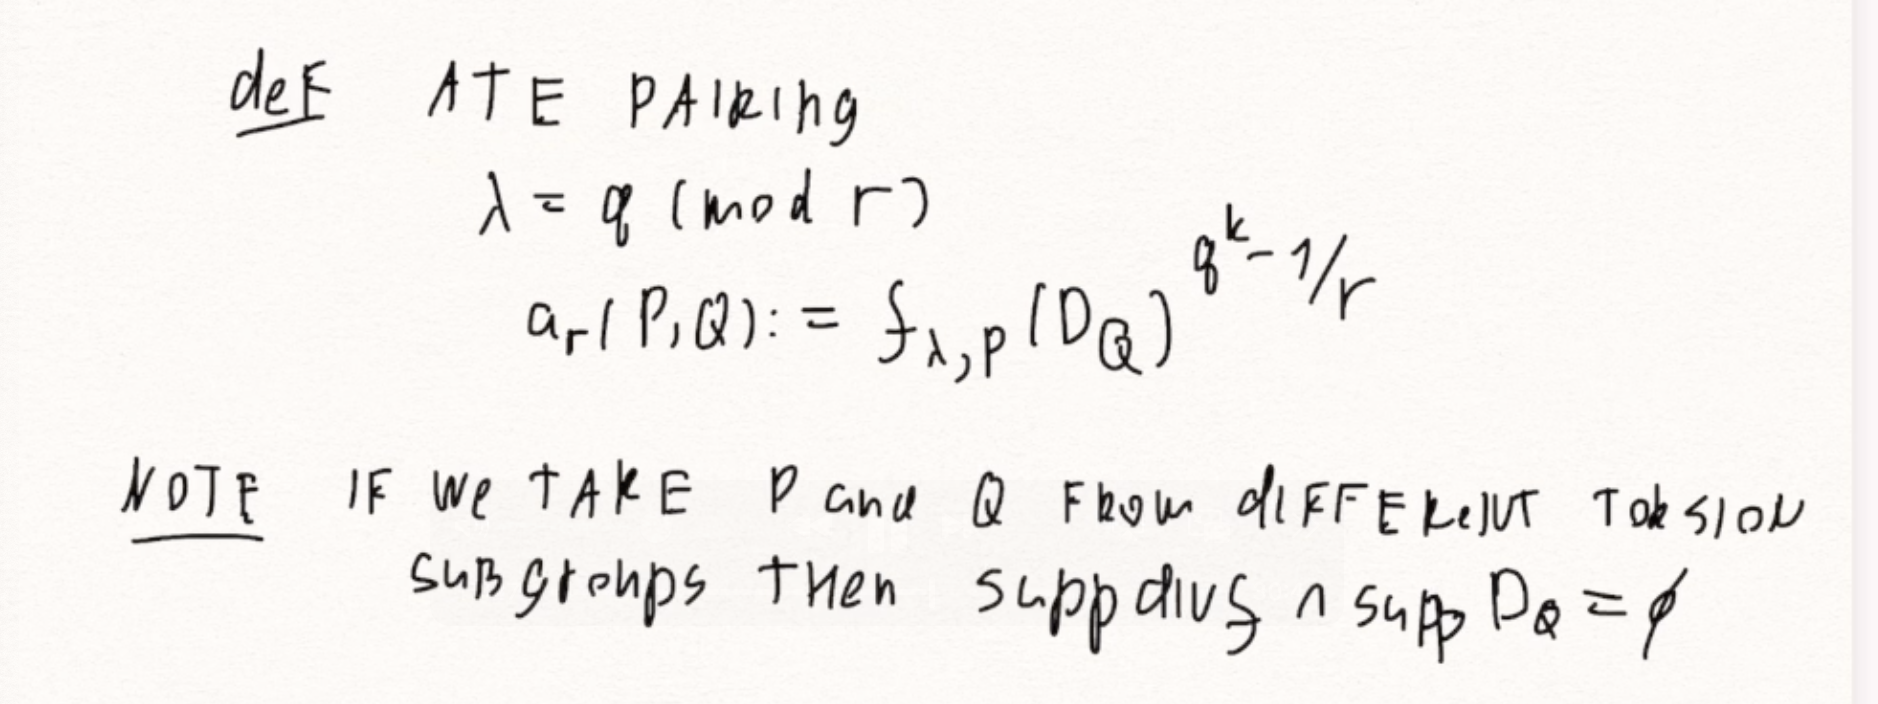 deF ATE PAIRIng
λ = q (mod r)
a_r(P,Q) := f_{λ,P}(D_Q)^{q^k-1/r}
NOTE IF We TAKE P and Q FROM dIFFEReNT TORSION
SUBgroups THen supp div f ∩ supp D_Q = ∅